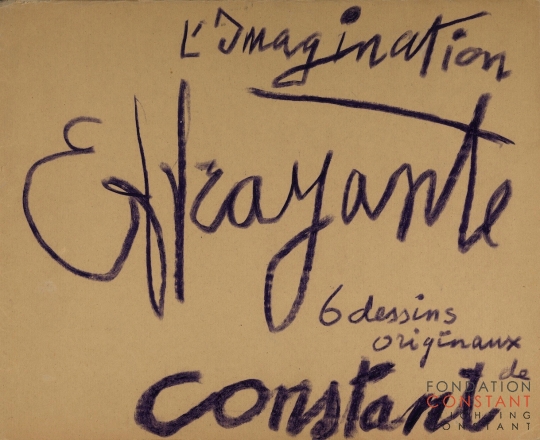 L'Imagination
Effrayante
6 dessins
originaux
de
constant
FONDATION
CONSTANT
CONSTANT